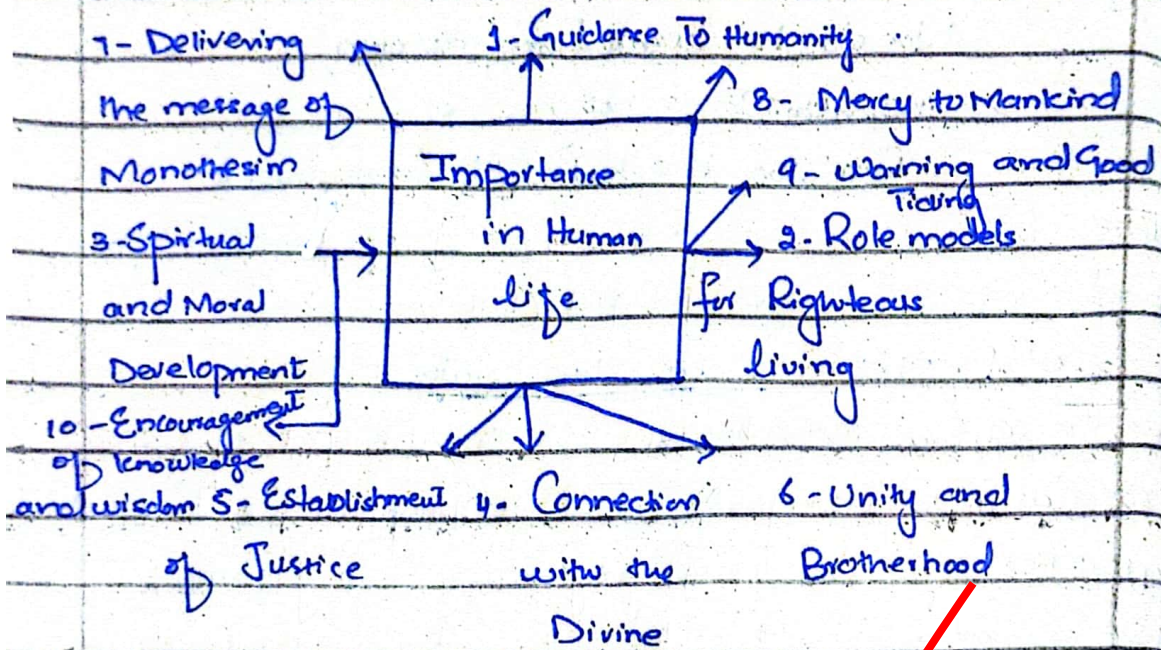 7- Delivering
the message of
Monothesim
1- Guidance To Humanity
8- Mercy to Mankind
9- Warning and Good
Tiding
2- Role models
for Righteous
living
Importance
in Human
life
3-Spirtual
and Moral
Development
10-Encouragement
of knowledge
and wisdom
5- Establishment
of Justice
4- Connection
with the
Divine
6-Unity and
Brotherhood